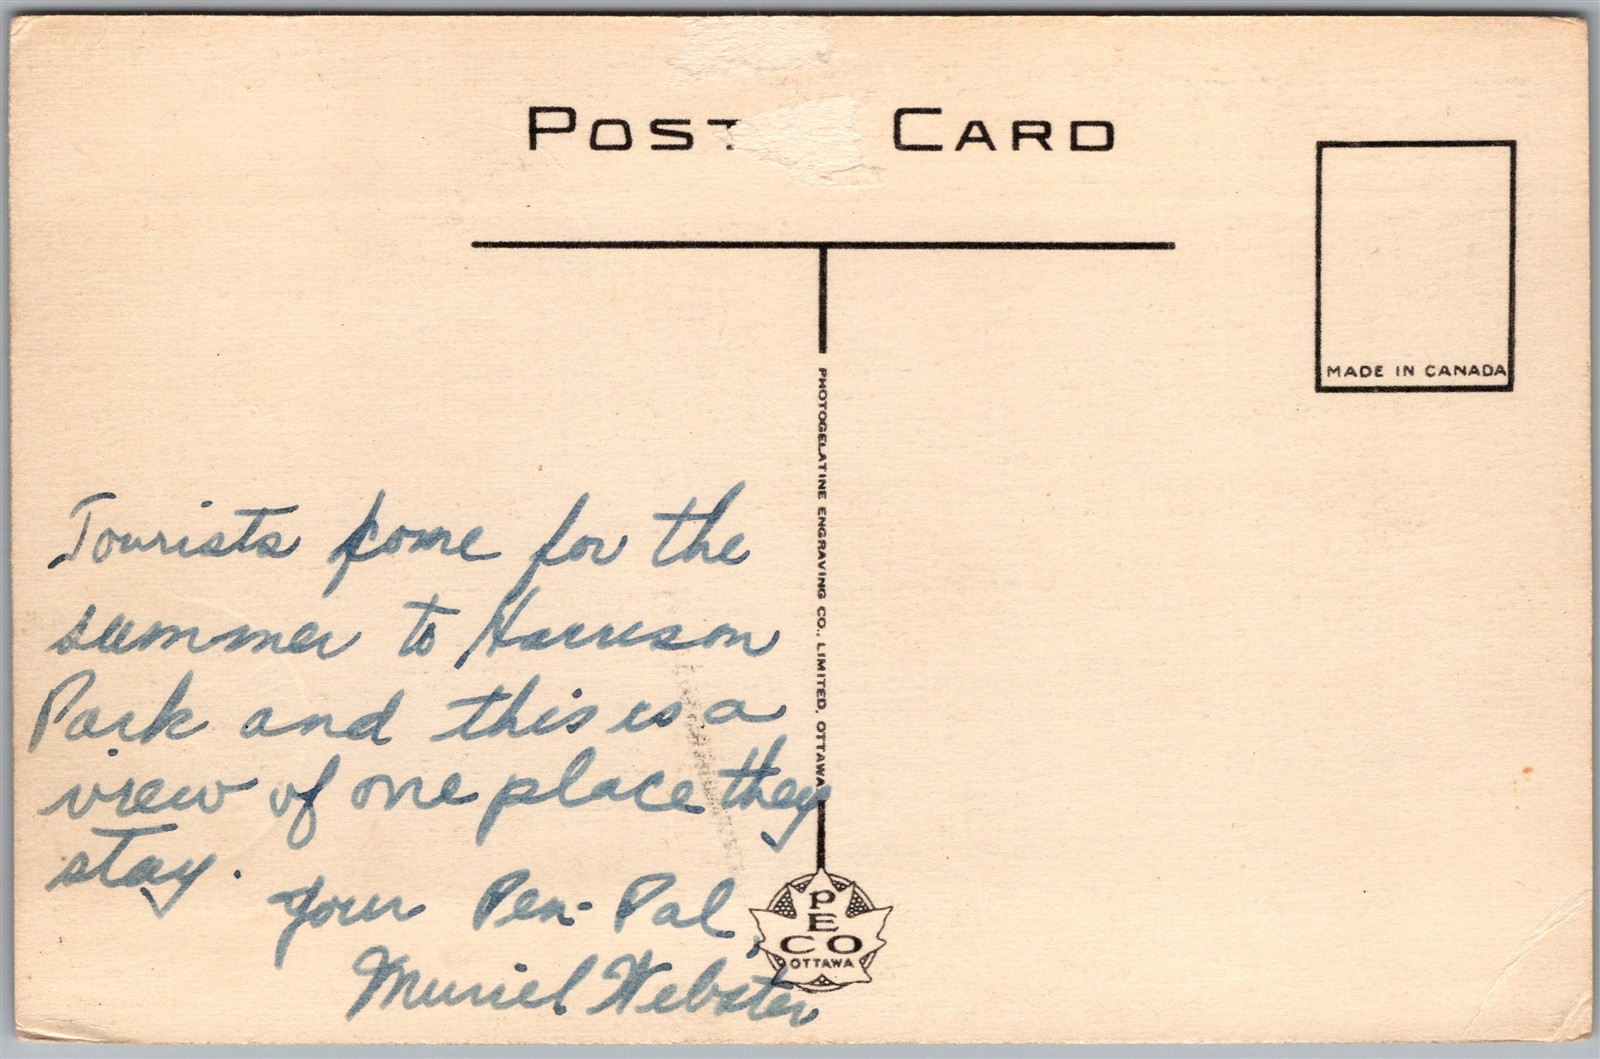 POST CARD
MADE IN CANADA
PHOTOGELATINE ENGRAVING CO., LIMITED, OTTAWA
Tourists come for the
summer to Harrison
Park and this is a
view of one place they
stay.
Your Pen-Pal,
Muriel Webster
PECO
OTTAWA